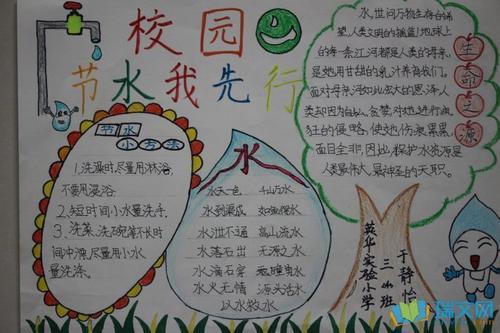 校园
节水我先行
节水
小方法
1.洗澡时,尽量用淋浴,
不要用浸浴.
2.短时间小水量洗手.
3.洗菜、洗碗筷不长时
间冲涤,尽量用小水
量洗涤。
水
水天一色 千山万水
水到渠成 如鱼得水
水泄不通 高山流水
水落石出 无源之水
水滴石穿
水火无情 源头活水
以水救水
水,世间万物生存的希
望,人类文明的摇篮!地球上
的每一条江河都是人类的母亲,
是她用甘甜的乳汁养育我们。
面对母亲河如此出大的恩泽,人
类却因为自私、贪婪,对她进行疯
狂的侵略,使她伤痕累累、
面目全非。因此,保护水资源是
人类最伟大、最神圣的天职。
生命之源
英华实验小学
三(4)班
于静怡
瑞文网